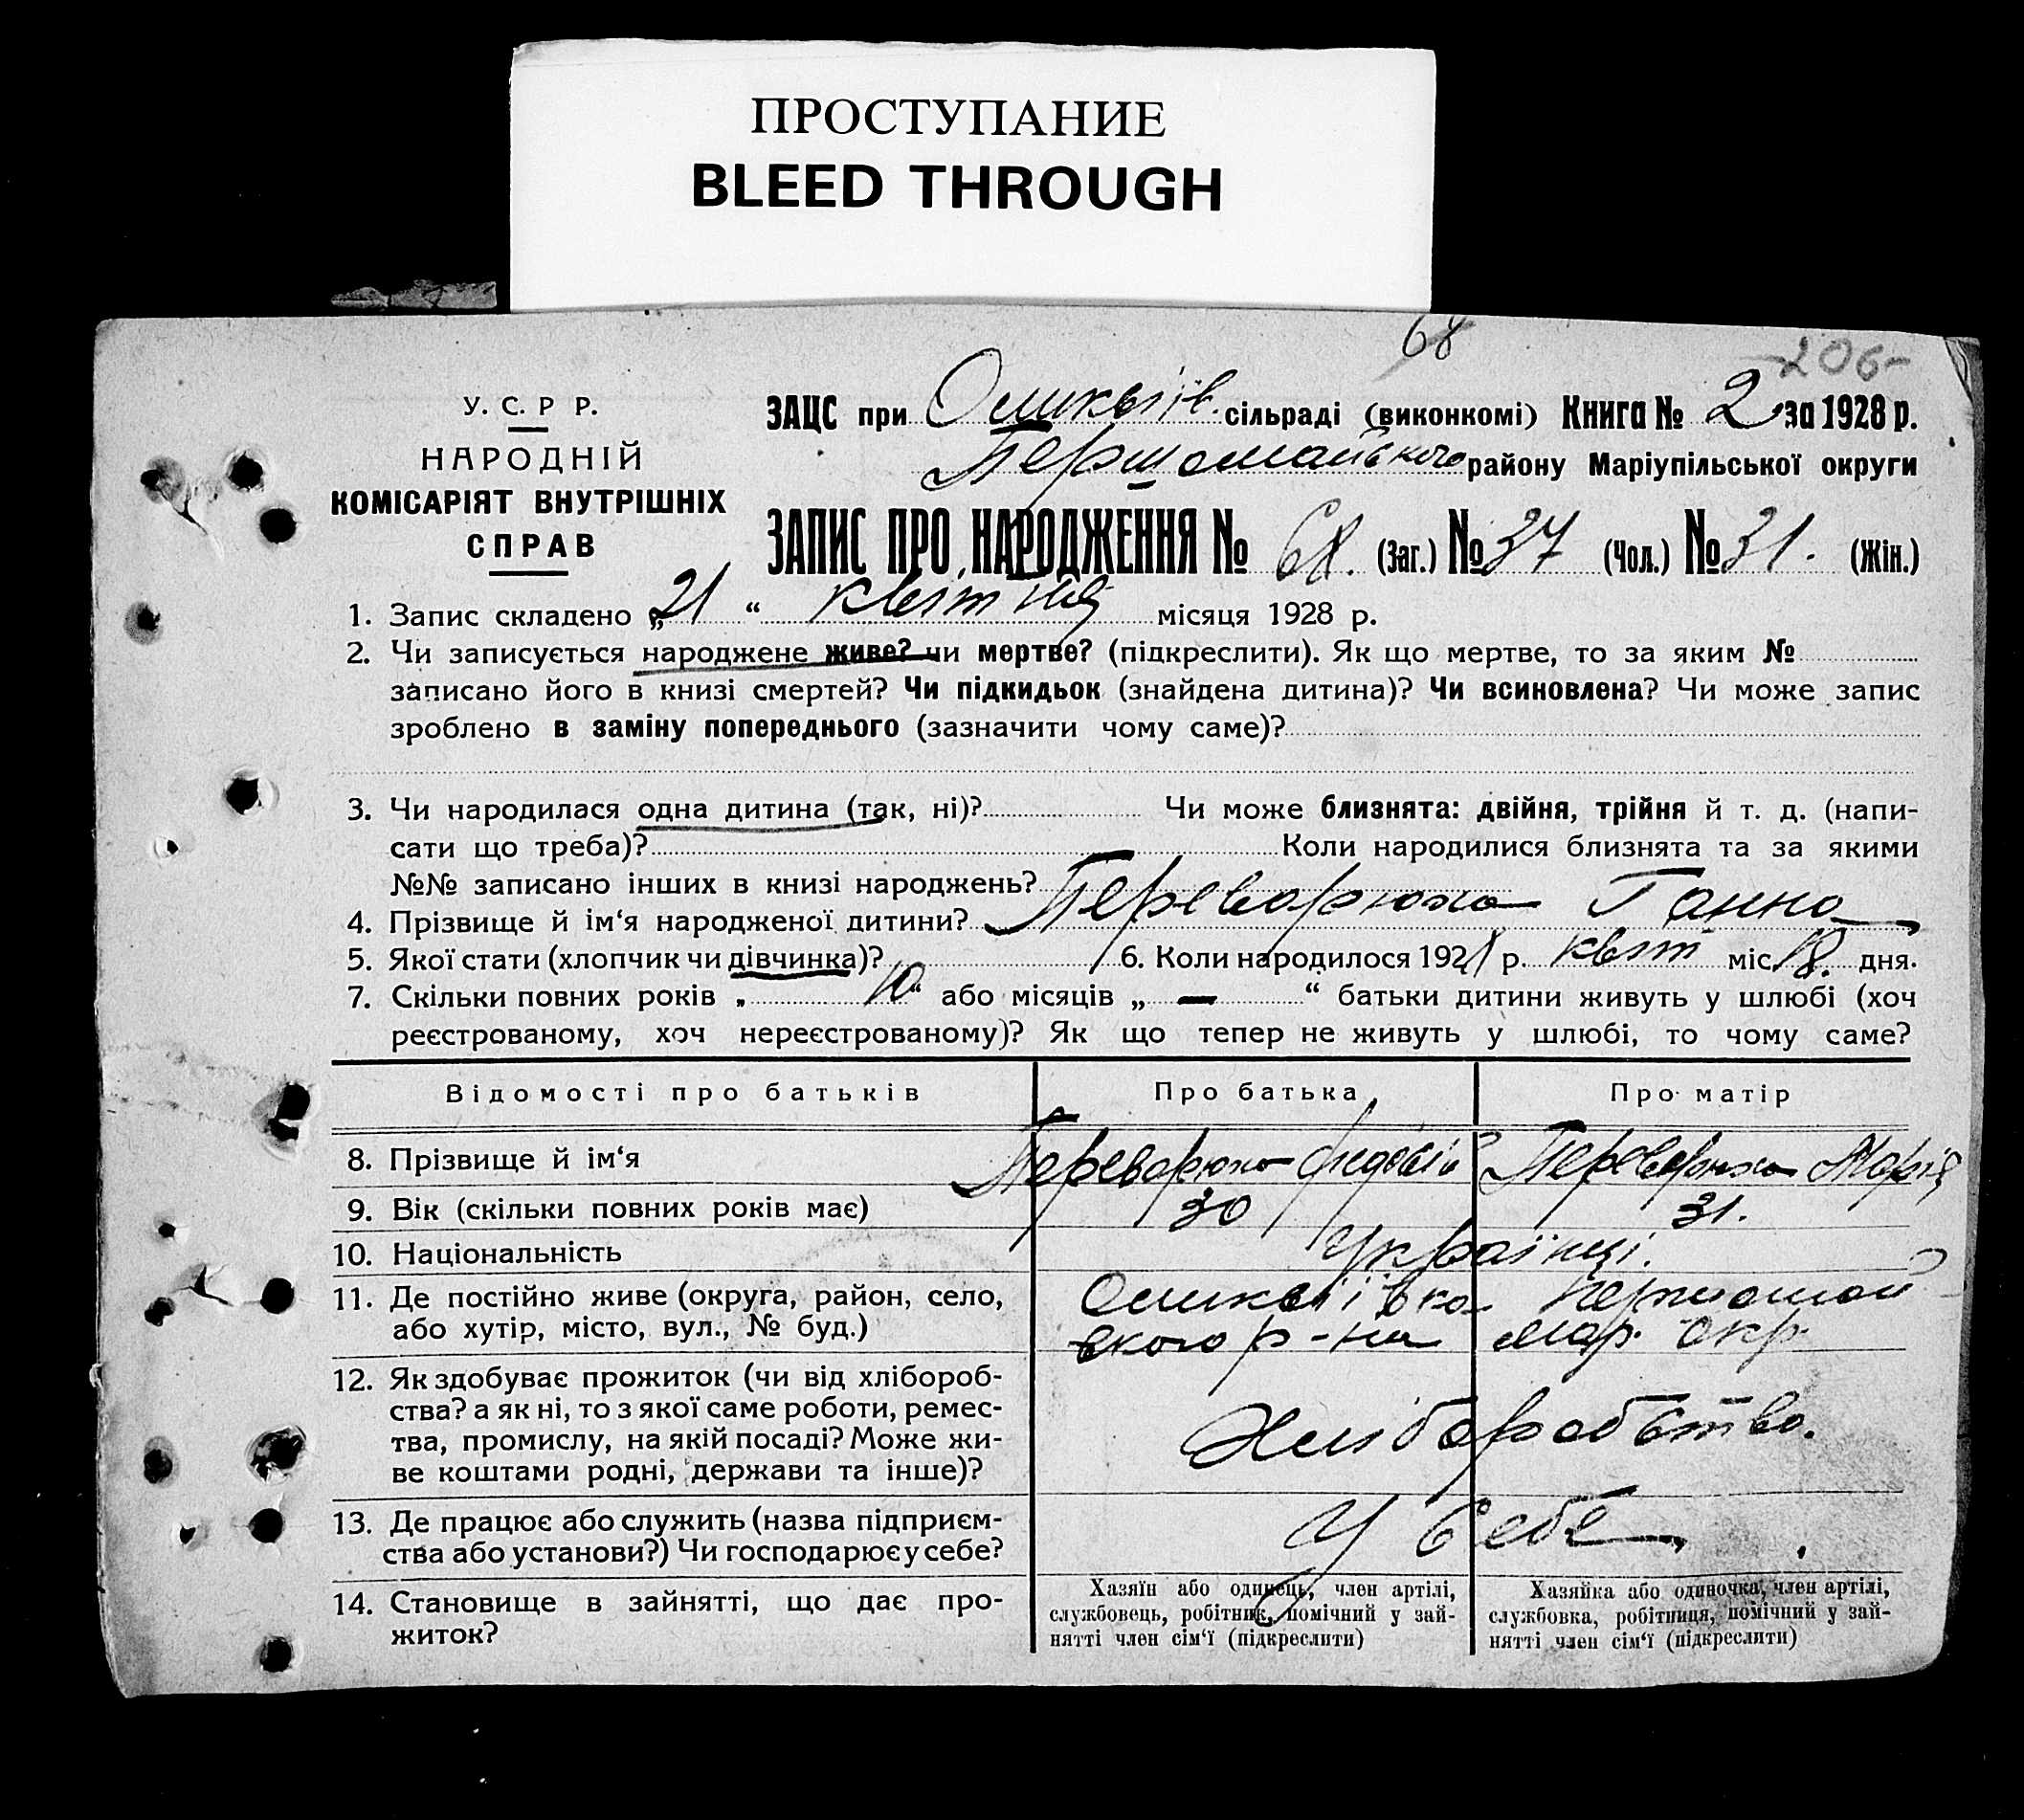 ПРОСТУПАНИЕ
BLEED THROUGH
68
-206-
У. С. Р Р.
НАРОДНІЙ
КОМІСАРІЯТ ВНУТРІШНІХ
СПРАВ
ЗАЦС при сільраді (виконкомі) Книга № 2 за 1928 р.
Першомайського району Маріупільської округи
ЗАПИС ПРО НАРОДЖЕННЯ № 68. (Заг.) № 37 (Чол.) № 31. (Жін.)
1. Запис складено „21“ квітня місяця 1928 р.
2. Чи записується народжене живе? чи мертве? (підкреслити). Як що мертве, то за яким №
записано його в книзі смертей? Чи підкидьок (знайдена дитина)? Чи всиновлена? Чи може запис
зроблено в заміну попереднього (зазначити чому саме)?
3. Чи народилася одна дитина (так, ні)? Чи може близнята: двійня, трійня й т. д. (напи-
сати що треба)? Коли народилися близнята та за якими
№№ записано інших в книзі народжень?
4. Прізвище й ім‘я народженої дитини? Переворюха Ганна
5. Якої стати (хлопчик чи дівчинка)? 6. Коли народилося 1928 р. квіт міс 18. дня.
7. Скільки повних років „ 10 “ або місяців „ — “ батьки дитини живуть у шлюбі (хоч
реєстрованому, хоч нереєстрованому)? Як що тепер не живуть у шлюбі, то чому саме?
Відомості про батьків Про батька Про матір
8. Прізвище й ім‘я Переворюха Федосій Переворюха Марія
9. Вік (скільки повних років має) 30 31.
10. Національність Українці.
11. Де постійно живе (округа, район, село, Першомай
або хутір, місто, вул., № буд.) ського р-на Мар. окр.
12. Як здобуває прожиток (чи від хлібороб-
ства? а як ні, то з якої саме роботи, ремес- Хліборобство.
тва, промислу, на якій посаді? Може жи-
ве коштами родні, держави та інше)?
13. Де працює або служить (назва підприєм- У себе
ства або установи?) Чи господарює у себе?
14. Становище в зайнятті, що дає про-
житок?
Хазяїн або одинець, член артілі,
службовець, робітник, помічний у зай-
нятті член сім‘ї (підкреслити)
Хазяйка або одиночка, член артілі,
службовка, робітниця, помічний у зай-
нятті член сім‘ї (підкреслити)